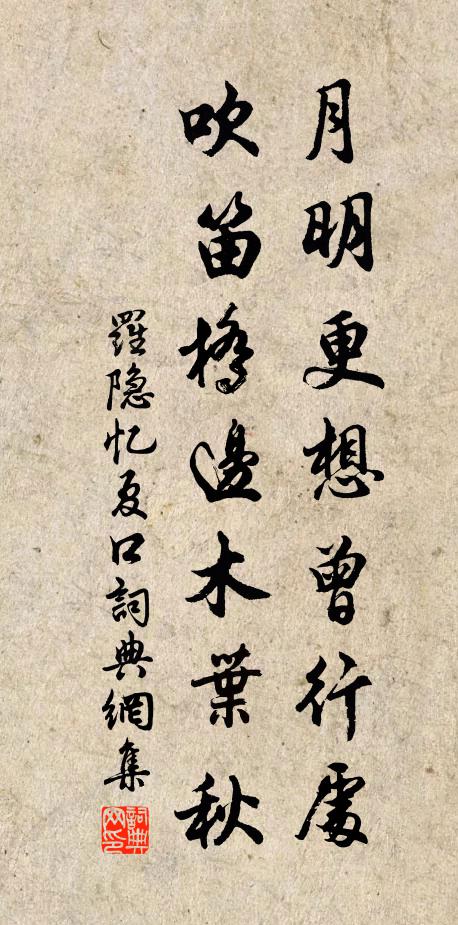 月明更想曾行處
吹笛橋邊木葉秋
羅隐忆夏口詞典網集
詞典网印